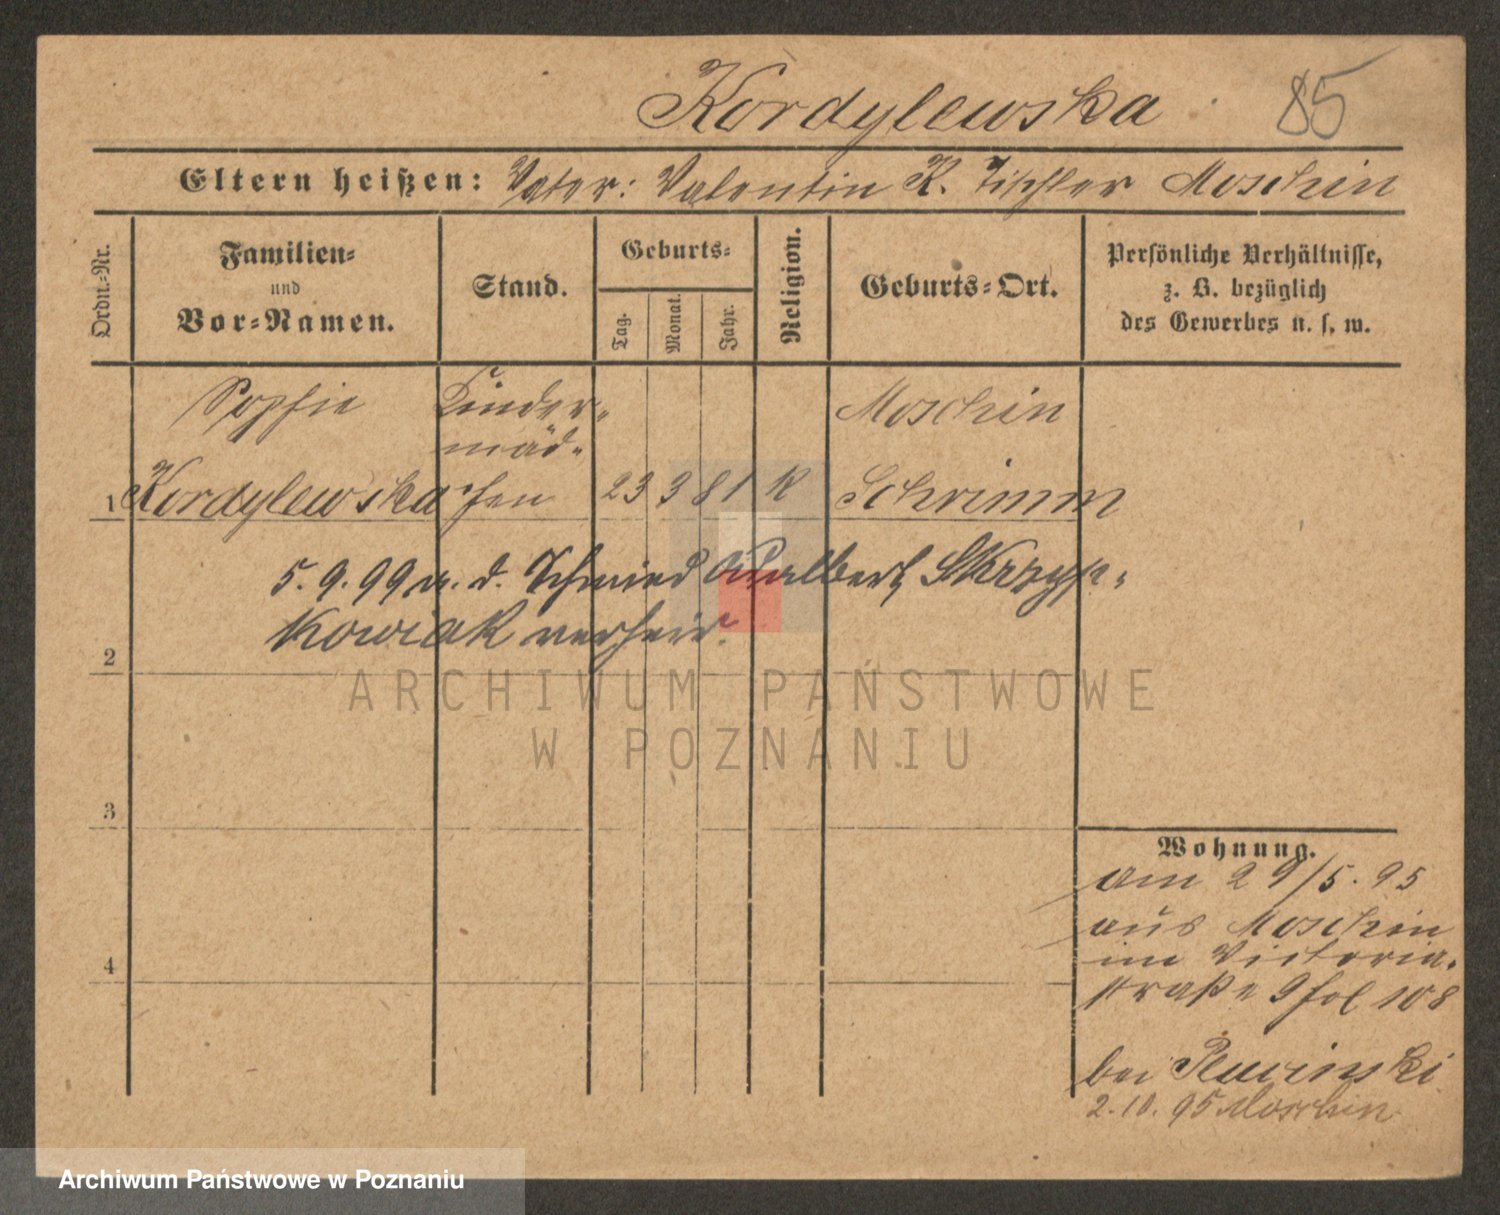 Kordylewska 85
Eltern heißen: Vater: Valentin K. Tischler Moschin
Ordn.-Nr.
Familien-
und
Vor-Namen.
Stand.
Geburts-
Tag.
Monat.
Jahr.
Religion.
Geburts-Ort.
Persönliche Verhältnisse,
z. B. bezüglich
des Gewerbes u. s. w.
Sophie Kinder- Moschin
mäd-
1 Kordylewska chen 23 3 81 K Schrimm
5. 9. 99 a. d. Schmied Adalbert Skrzyp-
kowiak verheir.
2
3
4
Wohnung.
am 29/5. 95
aus Moschin
im Victoria-
straße 9 fol 108
bei
2. 10. 95 Moschin
ARCHIWUM PAŃSTWOWE
W POZNANIU
Archiwum Państwowe w Poznaniu